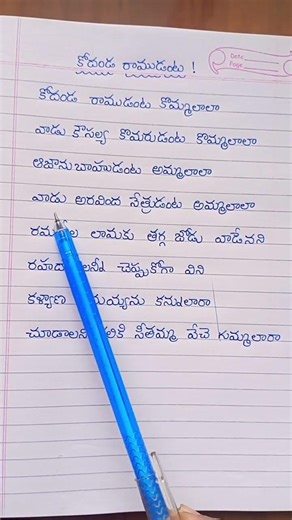 కోదండ రాముడంట !
Date
Page
కోదండ రాముడంట కొమ్మలాలా
వాడు కౌసల్య కొమరుడంట కొమ్మలాలా
ఆజానుబాహుడంట అమ్మలాలా
వాడు అరవింద నేత్రుడంట అమ్మలాలా
లామకు తగ్గ జోడు వాడేనని
చెప్పుకోగా విని
కళ్యాణ కనులారా
సీతమ్మ వేచె గుమ్మలారా